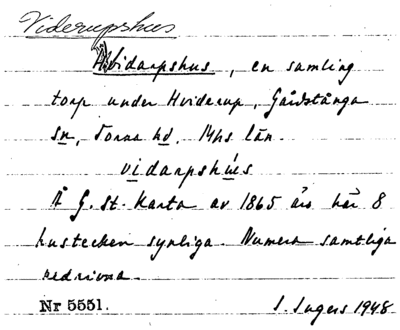 Viderupshus
Hvidarpshus, en samling
torp under Hviderup, Gårdstånga
sn, Torna hd, Mhs län.
vidarpshus
Å G. st. Karta av 1865 äro här 8
hustecken synliga. Numera samtliga
nedrivna.
Nr 5551. I. Ingers 1948